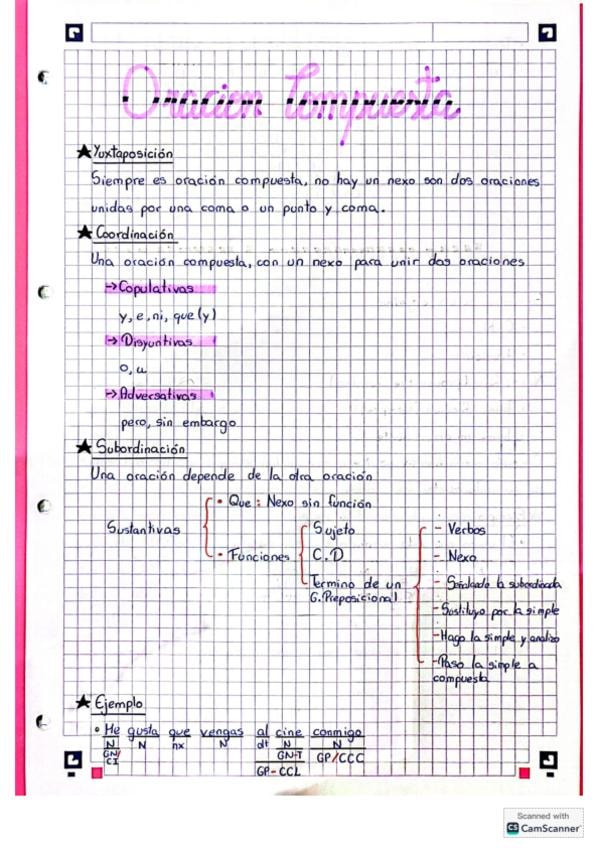 Oracion Compuesta
★ Yuxtaposición
Siempre es oración compuesta, no hay un nexo son dos oraciones
unidas por una coma o un punto y coma.
★ Coordinación
Una oración compuesta, con un nexo para unir dos oraciones
→ Copulativas
y, e, ni, que (y)
→ Disyuntivas
o, u
→ Adversativas
pero, sin embargo
★ Subordinación
Una oración depende de la otra oración
Sustantivas
• Que: Nexo sin función
• Funciones
Sujeto
C.D
Termino de un
G. Preposicional
- Verbos
- Nexo
- Señalado la subordinada
- Sustituyo por la simple
- Hago la simple y analizo
- Paso la simple a
compuesta
★ Ejemplo
• Me gusta que vengas al cine conmigo
N N nx N dt N N
GN/ GN-T GP/CCC
CI
GP-CCL
Scanned with
CS CamScanner